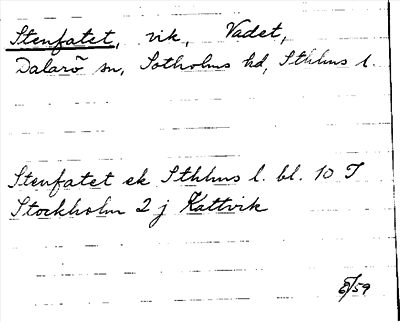 Stenfatet, vik, Vadet,
Dalarö sn, Sotholms hd, Sthlms l.
Stenfatet ek Sthlms l. bl. 10 J
Stockholm 2 j Kattvik
E/59